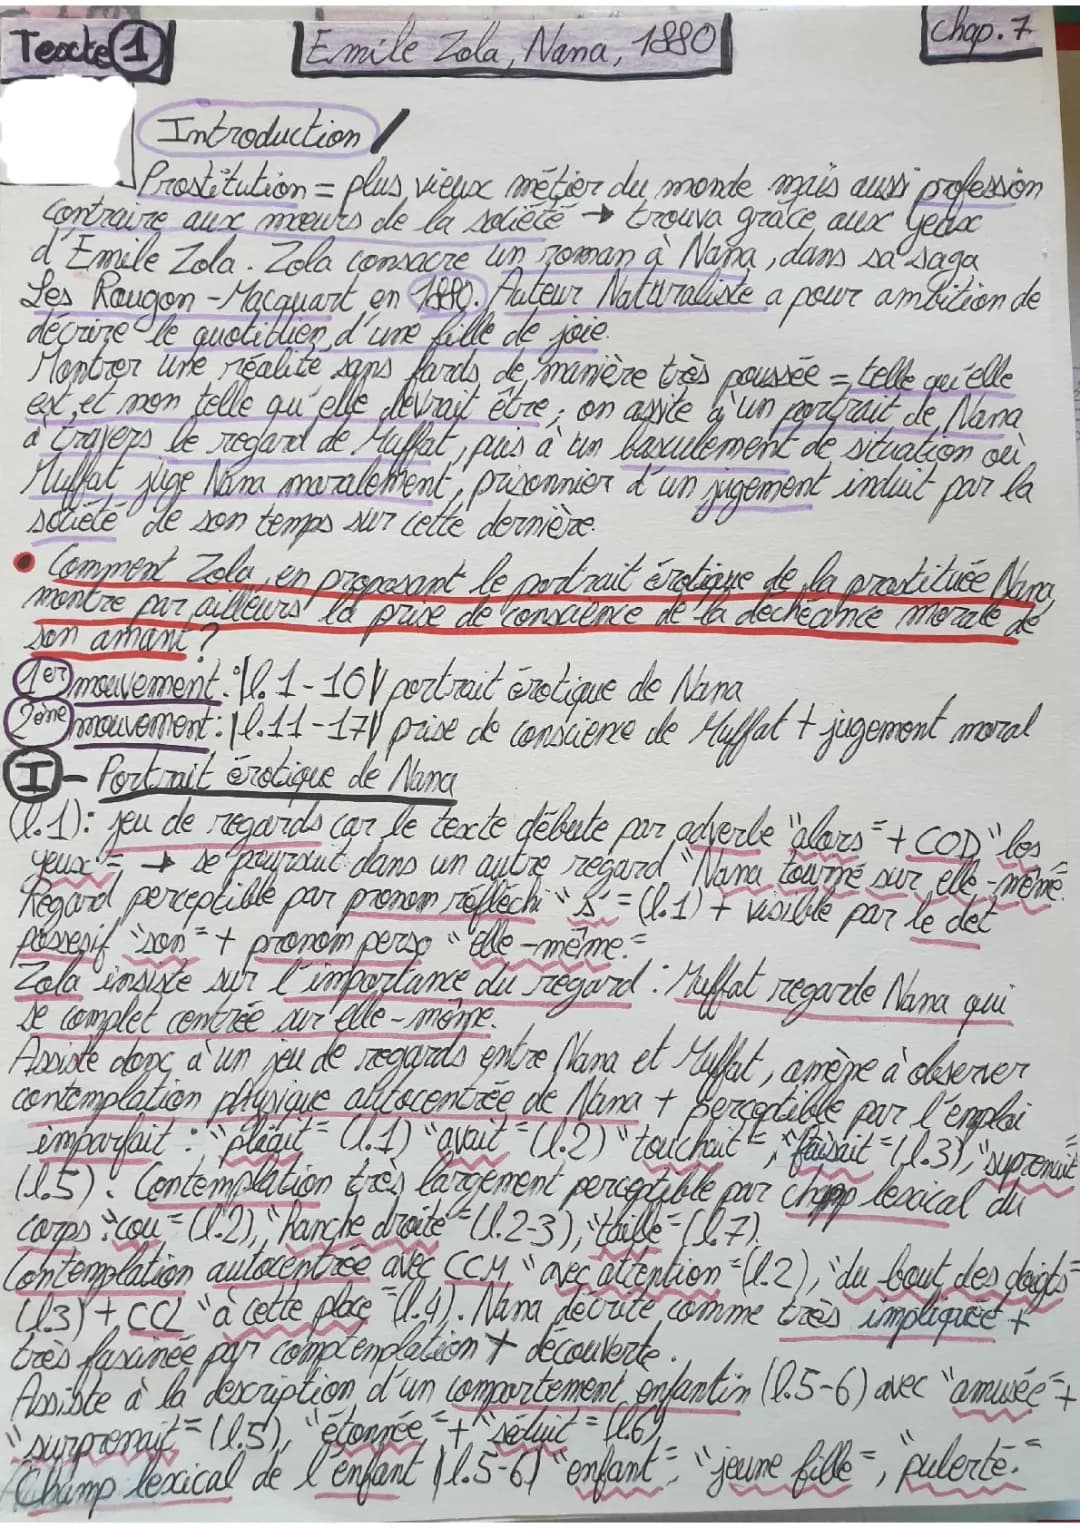 Texte 1
Emile Zola, Nana, 1880
Chap. 7
Introduction /
Prostitution = plus vieux métier du monde mais aussi profession
contraire aux mœurs de la société → trouva grâce aux yeux
d'Emile Zola. Zola consacre un roman à Nana, dans sa saga
Les Rougon-Macquart en 1880. Auteur Naturaliste a pour ambition de
décrire le quotidien d'une fille de joie.
Montrer une réalité sans fards de manière très poussée = telle qu'elle
est et non telle qu'elle devrait être ; on assite à un portrait de Nana
à travers le regard de Muffat, puis à un basculement de situation où
Muffat juge Nana moralement, prisonnier d'un jugement induit par la
société de son temps sur cette dernière.
• Comment Zola, en proposant le portrait érotique de la prostituée Nana,
montre par ailleurs la prise de conscience de la déchéance morale de
son amant ?
1er mouvement : |l.1-10| portrait érotique de Nana
2ème mouvement : |l.11-17| prise de conscience de Muffat + jugement moral
I - Portrait érotique de Nana
(l.1): jeu de regards car le texte débute par adverbe "alors" + COD "les
yeux" → se poursuit dans un autre regard "Nana tourné sur elle-même.
Regard perceptible par pronom réfléchi "s'" (l.1) + visible par le det
possesif "son" + pronom perso "elle-même."
Zola insiste sur l'importance du regard : Muffat regarde Nana qui
se complet centrée sur elle-même.
Assiste donc à un jeu de regards entre Nana et Muffat, amène à observer
contemplation physique autocentrée de Nana + perceptible par l'emploi
imparfait : "plaçait" (l.1) "avait" (l.2) "touchait", "faisait" (l.3), "suprenait"
(l.5). Contemplation très largement perceptible par champ lexical du
corps : "cou" (l.2), "hanche droite" (l.2-3), "taille" (l.7).
Contemplation autocentrée avec CCM "avec attention" (l.2), "du bout des doigts"
(l.3) + CCL "à cette place" (l.4). Nana décrite comme très impliquée +
très fascinée par comptenplation + découverte.
Assiste à la description d'un comportement enfantin (l.5-6) avec "amusée" +
"surprenait" (l.5), "étonnée" + "séduit" (l.6)
Champ lexical de l'enfant (l.5-6) "enfant", "jeune fille", "puberté."